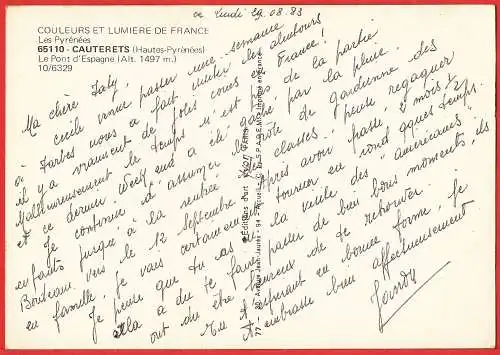 COULEURS ET LUMIERE DE FRANCE
Les Pyrénées
65110 - CAUTERETS (Hautes-Pyrénées)
Le Pont d'Espagne (Alt. 1497 m.)
10/6329
ce Lundi 29.08.83
Ma chère Katy,
Cecile venue passer une semaine
à Tarbes nous a fait visiter les alentours
il y a vraiment de jolies coins en France!
Malheureusement le temps n'est pas de la partie
et ce dernier Week end a été gâché par la pluie.
Je continue d'assumer le rôle de gardienne des
enfants jusqu'à la rentrée des classes. Je pense regagner
Bordeaux vers le 12 Septembre après avoir passé 2 mois 1/2
en famille. Je vais certainement tourner en rond quelques temps.
Je pense que tu as eu la venue des "américains"
cela a du te faire passer de bien bons moments, ils
ont du être heureux de te retrouver.
En t'espérant en bonne forme, je
t'embrasse bien affectueusement
Editions d'art YVON